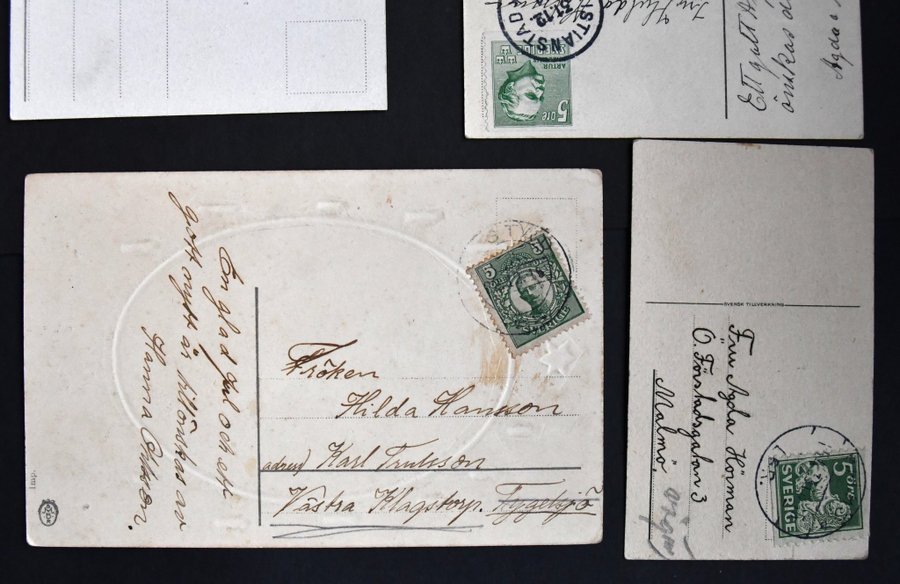 KRISTIANSTAD
31.12
SVERIGE
ARTUR
5 öre
Fru Hulda
Ett gott
önskas
Agda
En glad jul och ett
gott nytt år tillönskas av
Hanna
5
SVERIGE
Fröken
Hilda Hansson
adress Karl Trulsson
Västra Klagstorp. Tygelsjö
Imp.
SVENSK TILLVERKNING
Fru Agda Hörman
Ö. Förstadsgatan 3
Malmö.
5 öre
SVERIGE